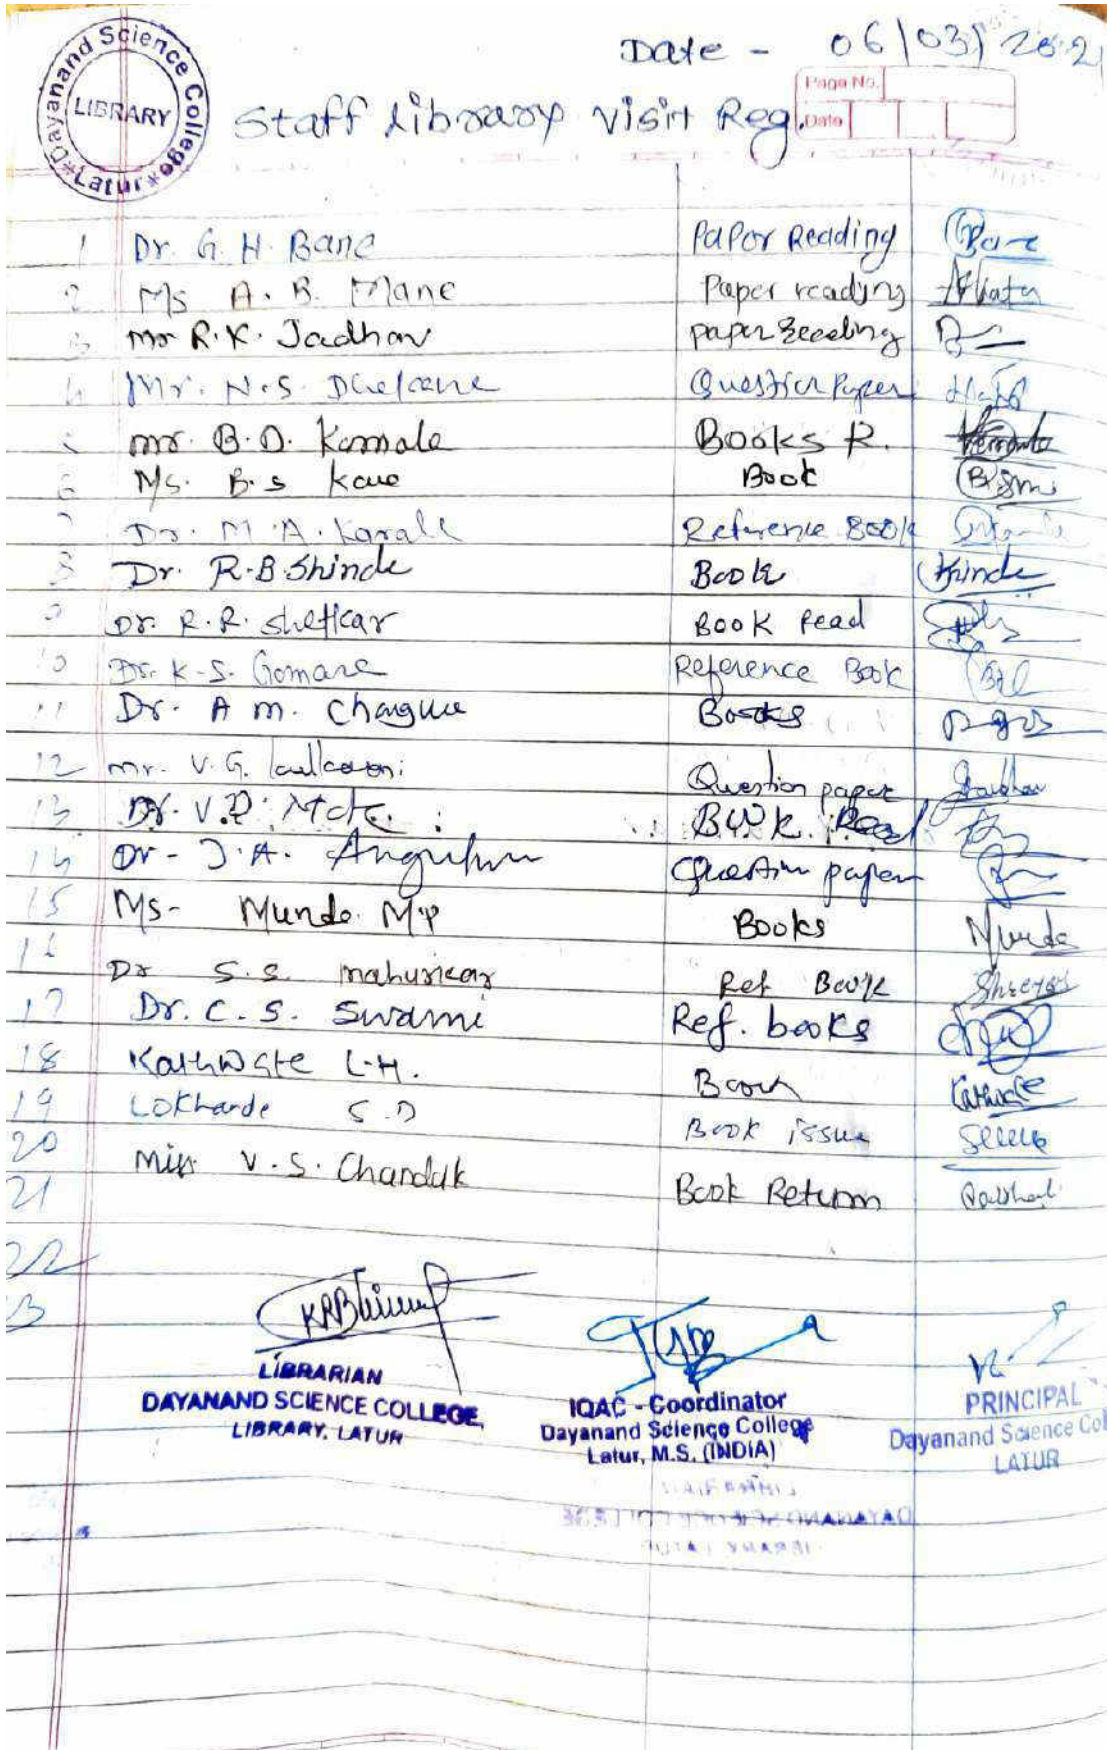 Dayanand Science College
LIBRARY
*Latur*
Date - 06/03/2021
Page No.
Date
Staff Library Visit Reg.
1 Dr. G. H. Bane Papor Reading Bane
2 Ms A. B. Mane Paper reading
3 mr R.K. Jadhav paper Reading
4 Mr. N.S. Question Paper
5 mr. B.D. Kamale Books R.
6 Ms. B.S Kave Book
7 Dr. M.A. Karale Reference Book
8 Dr. R.B Shinde Book Shinde
9 Dr. R.R. Shetkar Book Read
10 Dr. K.S. Gomare Reference Book
11 Dr. A m. Books
12 mr. V.G. Question paper
13 Dr. V.D. Book Read
14 Dr - J.A. Question paper
15 Ms- Munde M.P Books Munde
16 Dr S.S. mahurkar Ref Book
17 Dr. C. S. Swami Ref. books
18 Kathwate L.H. Book Kathwate
19 Lokhande S.D Book issue
20 Miss V.S. Chandak
21 Book Return
22
3
LIBRARIAN
DAYANAND SCIENCE COLLEGE,
LIBRARY, LATUR
IQAC - Coordinator
Dayanand Science College
Latur, M.S. (INDIA)
PRINCIPAL
Dayanand Science Col
LATUR